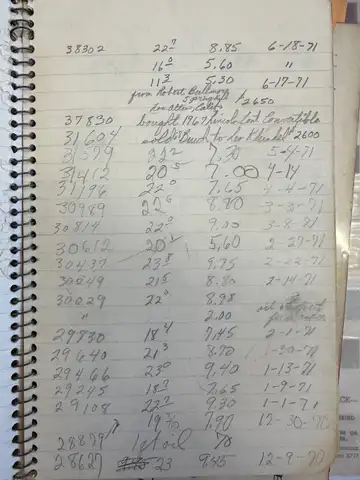 38302 22⁷ 8.85 6-18-71
16⁰ 5.60 "
11³ 5.30 6-17-71
from Robert
Los Altos Calif $2650
37830 bought 1967 Lincoln Cont Convertible
31604 sold Buick to 2600
31579 22² 7.30 5-4-71
31412 20⁵ 7.00 4-14
31196 22⁰ 7.65 4-4-71
30989 22⁶ 8.80 3-3-71
30814 22⁰ 9.00 3-8-71
30612 20² 5.60 2-27-71
30437 23⁸ 9.75 2-22-71
30249 21⁵ 8.80 2-14-71
30029 22⁰ 8.98
" 2.00 oil
29830 18⁴ 7.45 2-1-71
29640 21³ 8.70 1-30-71
29466 23⁰ 9.40 1-13-71
29245 18⁷ 7.65 1-9-71
29108 22⁷ 9.30 1-1-71
19 7.90 12-30-70
28879 1 qt oil 70
28627 23 9.45 12-9-70